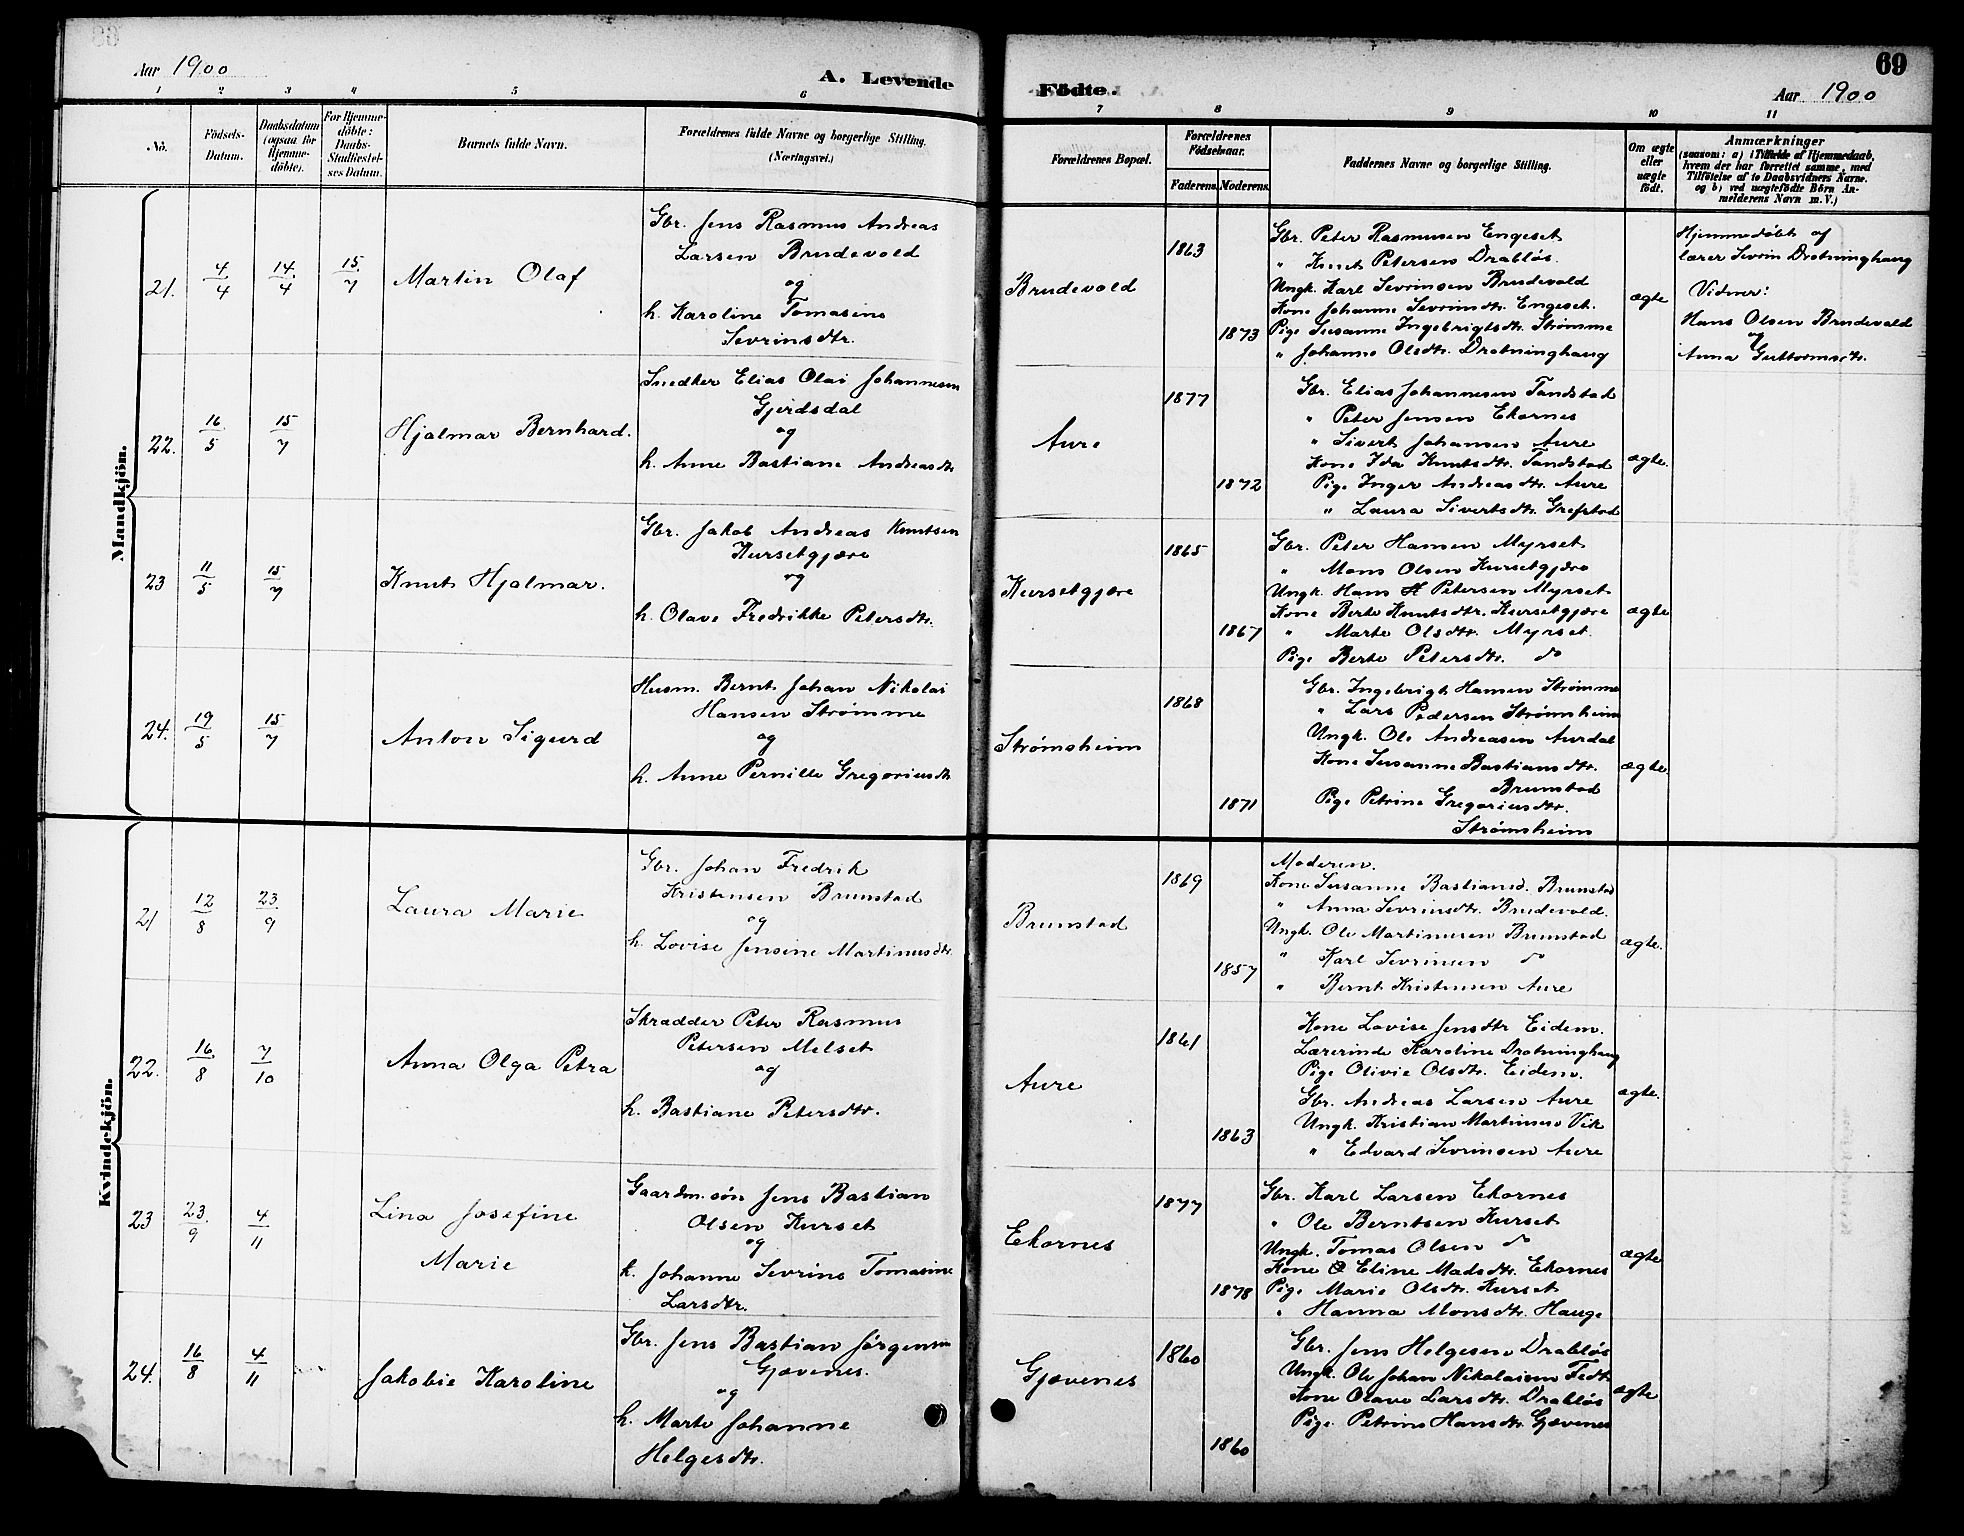 Aar 1900
A. Levende
1 2 3 4 5 6
No.
Födsels-Datum.
Daabsdatum (ogsaa for Hjemme-döbte).
For Hjemme-döbte: Daabs-Stadfæstel-ses Datum.
Barnets fulde Navn.
Forældrenes fulde Navne og borgerlige Stilling.
(Næringsvei.)
Mandkjön.
21. 4/4 14/4 15/7 Martin Olaf
Gbr. Jens Rasmus Andreas
Larsen Brudevold
og
h. Karoline Tomasine
Sevrinsdtr.
22. 16/5 15/7 Hjalmar Bernhard.
Snedker Elias Olai Johannesen
Gjerdsdal
og
h. Anne Bastiane Andreasdtr
23 11/5 15/7 Knut Hjalmar.
Gbr. Jakob Andreas Knutsen
Kursetgjære
og
h. Olave Fredrikke Petersdtr.
24. 19/5 15/7 Anton Sigurd
Husm. Bernt Johan Nikolai
Hansen Strømme
og
h. Anne Pernille Gregoriusdtr
Kvindekjön.
21 12/8 23/9 Laura Marie
Gbr. Johan Fredrik
Kristensen Brunstad
og
h. Lovise Jensine Martinusdtr.
22. 16/8 7/10 Anna Olga Petra
Skrædder Peter Rasmus
Petersen Melset
og
h. Bastiane Petersdtr.
23 23/9 4/11 Lina Josefine
Marie
Gaardm. søn Jens Bastian
Olsen Kurset
og
h. Johanne Sevrine Tomasine
Larsdtr.
24. 16/8 4/11 Jakobie Karoline
Gbr. Jens Bastian Jørgensen
Gjævenes.
og
h. Marte Johanne
Helgesdtr.
69
Födte.
Aar 1900
7 8 9 10 11
Forældrenes Bopæl.
Forældrenes Födselsaar.
Faderens. Moderens.
Faddernes Navne og borgerlige Stilling.
Om ægte eller uægte födt.
Anmærkninger
(saasom: a) i Tilfælde af Hjemmedaab,
hvem der har forrettet samme, med
Tilföielse af to Daabsvidners Navne.
og b) ved uægtefödte Börn An-
melderens Navn m. V.)
Brudevold 1863 1873
Gbr. Peter Rasmusen Engeset
" Knut Petersen Drabløs.
Ungk. Karl Sevrinsen Brudevold
Kone Johanne Sevrinsdtr. Engeset.
Pige Susanne Ingebrigtsdtr. Strømme
" Johanne Olsdtr. Drotninghaug
ægte
Hjemmedøbt af
lærer Sevrin Drotninghaug
Vidner:
Hans Olsen Brudevold
og
Anna Guttormsdtr.
Aure 1877 1872
Gbr. Elias Johannesen Tandstad
" Peter Jensen Ekornes
" Sivert Johansen Aure
Kone Ida Knutsdtr. Tandstad
Pige Inger Andreasdtr. Aure
" Laura Sivertsdtr. Grefstad
ægte.
Kursetgjære 1865 1867
Gbr. Peter Hansen Myrset
" Mons Olsen Kursetgjære
Ungk. Hans H Petersen Myrset
Kone Berte Knutsdtr. Kursetgjære
" Marte Olsdtr. Myrset.
Pige Berte Petersdtr. do
ægte
Strømsheim 1868 1871
Gbr. Ingebrigt Hansen Strømme
" Lars Pedersen Strømsheim
Ungk. Ole Andreasen Aurdal
Kone Susanne Bastiansdtr.
Brunstad
Pige Petrine Gregoriusdtr.
Strømsheim
ægte.
Brunstad 1869 1857
Moderen.
Kone Susanne Bastiansd. Brunstad
" Anna Sevrinsdtr. Brudevold.
Ungk. Ole Martinusen Brunstad
" Karl Sevrinsen do
" Bernt Kristensen Aure
ægte.
Aure 1861 1863
Kone Lovise Jensdtr Eidem.
Lærerinde Karoline Drotninghaug
Pige Olivie Olsdtr. Eidem.
Gbr. Andreas Larsen Aure
Ungk. Kristian Martinusen Vik
" Edvard Sevrinsen Aure
ægte.
Ekornes 1877 1878
Gbr. Karl Larsen Ekornes
" Ole Berntsen Kurset
Ungk. Tomas Olsen do
Kone Eline Madsdtr. Ekornes
Pige Marie Olsdtr. Kurset
" Hanna Monsdtr. Hauge
ægte
Gjævenes 1860 1860
Gbr. Jens Helgesen Drabløs
Ungk. Ole Johan Nikolaisen Fedt.
Kone Olave Larsdtr. Drabløs
Pige Petrine Hansdtr. Gjævenes
ægte